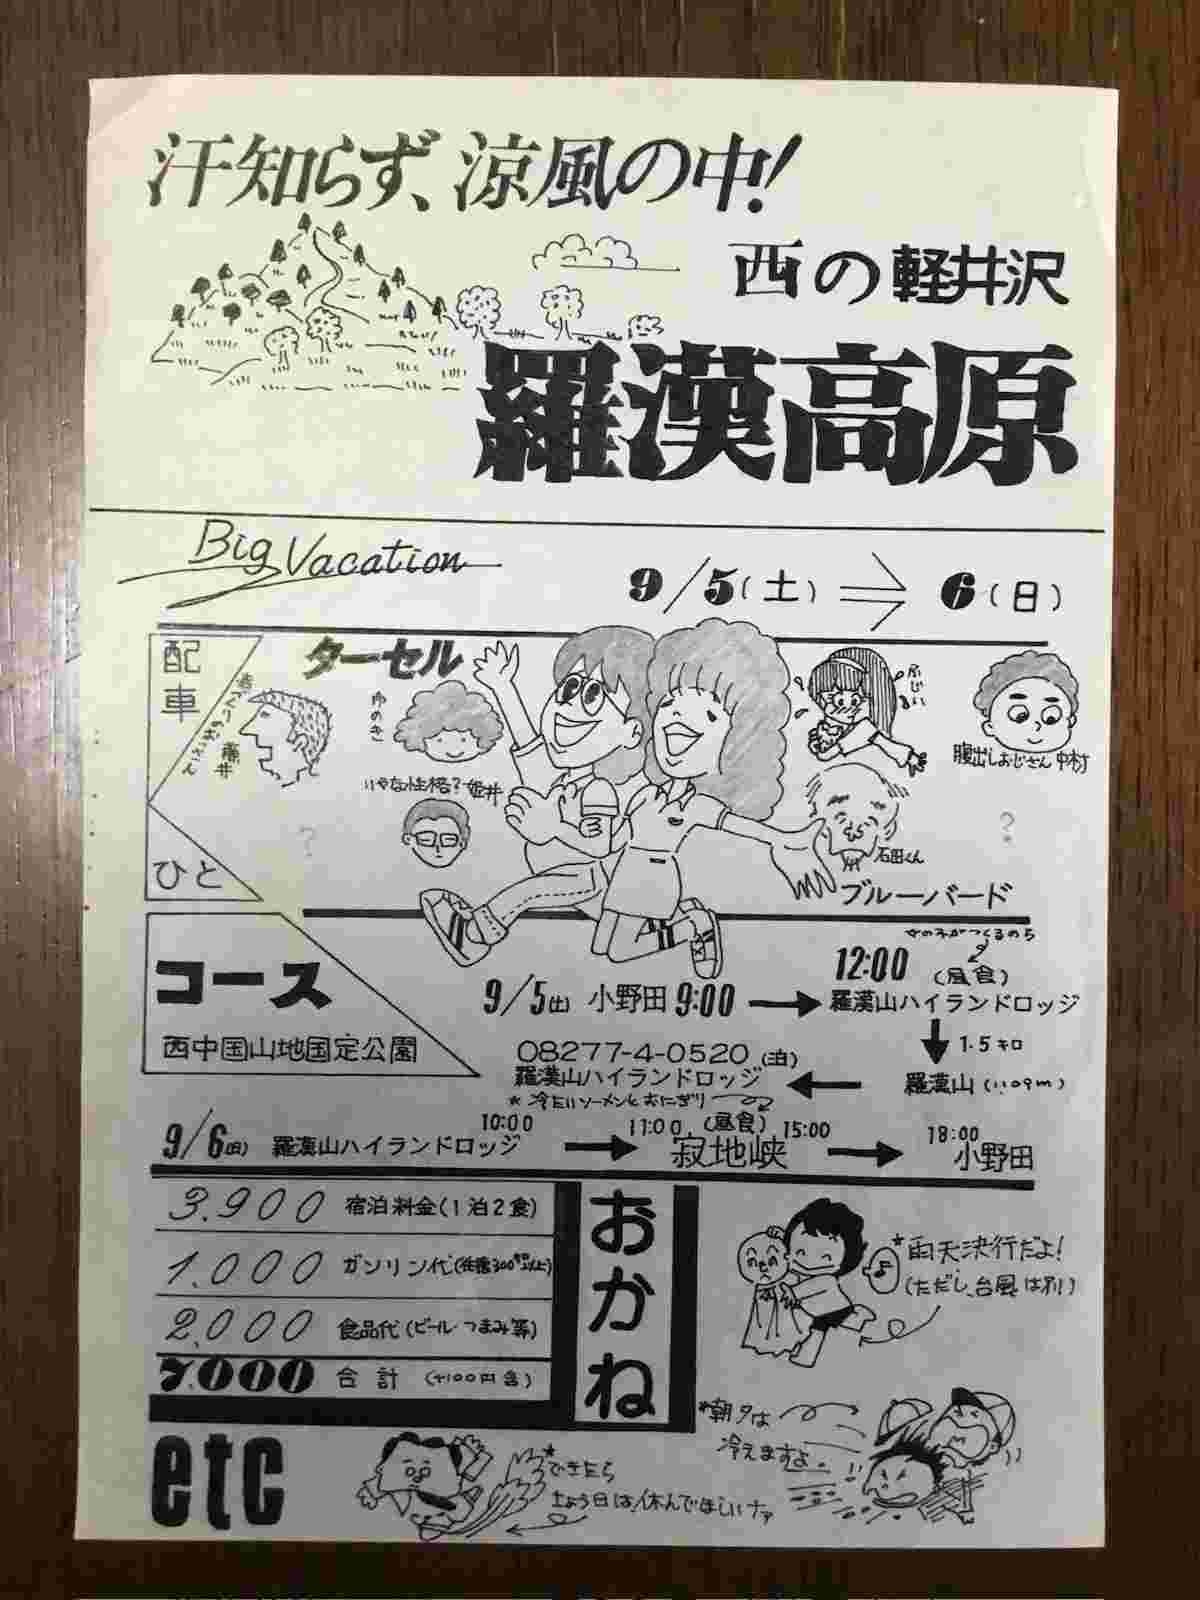 汗知らず、涼風の中!
西の軽井沢
羅漢高原
Big Vacation
9/5(土) ⇒ 6(日)
配車
ひと
ターセル
ゆめき
藤井
いやな性格? 姫井
?
ふじい
腹出しおじさん 中村
石田くん
?
ブルーバード
コース
西中国山地国定公園
女の子がつくるのら
9/5(土) 小野田 9:00 → 12:00 (昼食) 羅漢山ハイランドロッジ
↓ 1.5キロ
羅漢山(1109m)
← 08277-4-0520(泊)
羅漢山ハイランドロッジ
*冷たいソーメンとおにぎり
9/6(日) 羅漢山ハイランドロッジ 10:00 → 11:00 (昼食) 寂地峡 15:00 → 18:00 小野田
おかね
3.900 宿泊料金(1泊2食)
1.000 ガソリン代(往復300キロ以上)
2.000 食品代(ビール・つまみ等)
7.000 合計 (+100円含)
*雨天決行だよ!
(ただし、台風は別)
*朝夕は
冷えますよ。!!
etc
*できたら
土よう日は、休んでほしいナァ